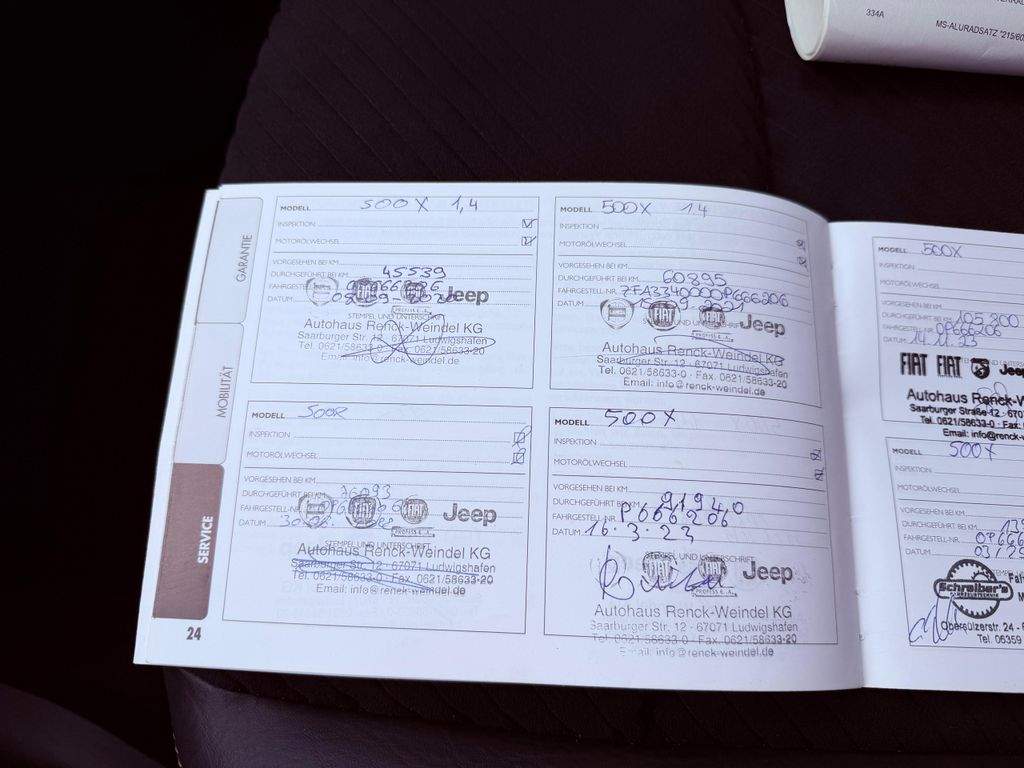 334A
MS-ALURADSATZ "215/60
GARANTIE
MOBILITÄT
SERVICE
24
MODELL 500X 1,4
INSPEKTION
MOTORÖLWECHSEL
VORGESEHEN BEI KM
DURCHGEFÜHRT BEI KM 45539
FAHRGESTELL-NR.
DATUM
FIAT Jeep
STEMPEL UND UNTERSCHRIFT
Autohaus Renck-Weindel KG
Saarburger Str. 12 - 67071 Ludwigshafen
Tel. 0621/58633-0 - Fax. 0621/58633-20
Email: info@renck-weindel.de
MODELL 500X 1.4
INSPEKTION
MOTORÖLWECHSEL
VORGESEHEN BEI KM
DURCHGEFÜHRT BEI KM 60895
FAHRGESTELL-NR. ZFA3340000P666206
DATUM
LANCIA FIAT Jeep
Autohaus Renck-Weindel KG
Saarburger Str. 12 - 67071 Ludwigshafen
Tel. 0621/58633-0 - Fax. 0621/58633-20
Email: info@renck-weindel.de
MODELL
INSPEKTION
MOTORÖLWECHSEL
VORGESEHEN BEI KM
DURCHGEFÜHRT BEI KM 76093
FAHRGESTELL-NR.
DATUM
FIAT Jeep
STEMPEL UND UNTERSCHRIFT
Autohaus Renck-Weindel KG
Saarburger Str. 12 - 67071 Ludwigshafen
Tel. 0621/58633-0 - Fax. 0621/58633-20
Email: info@renck-weindel.de
MODELL 500X
INSPEKTION
MOTORÖLWECHSEL
VORGESEHEN BEI KM
DURCHGEFÜHRT BEI KM 91940
FAHRGESTELL-NR. P666206
DATUM 16.3.23
STEMPEL UND UNTERSCHRIFT
FIAT Jeep
Autohaus Renck-Weindel KG
Saarburger Str. 12 - 67071 Ludwigshafen
Tel. 0621/58633-0 - Fax. 0621/58633-20
Email: info@renck-weindel.de
MODELL 500X
INSPEKTION
MOTORÖLWECHSEL
VORGESEHEN BEI KM
DURCHGEFÜHRT BEI KM 105300
FAHRGESTELL-NR. 0P666206
DATUM 14.11.23
FIAT FIAT Jeep
Autohaus Renck-W
Saarburger Straße 12 - 67071
Tel. 0621/58633-0 - Fax:
Email: info@renck-
MODELL 500X
INSPEKTION
MOTORÖLWECHSEL
VORGESEHEN BEI KM
DURCHGEFÜHRT BEI KM
FAHRGESTELL-NR. 0P666
DATUM
Schreiber's
Obersülzerstr. 24 -
Tel. 06359